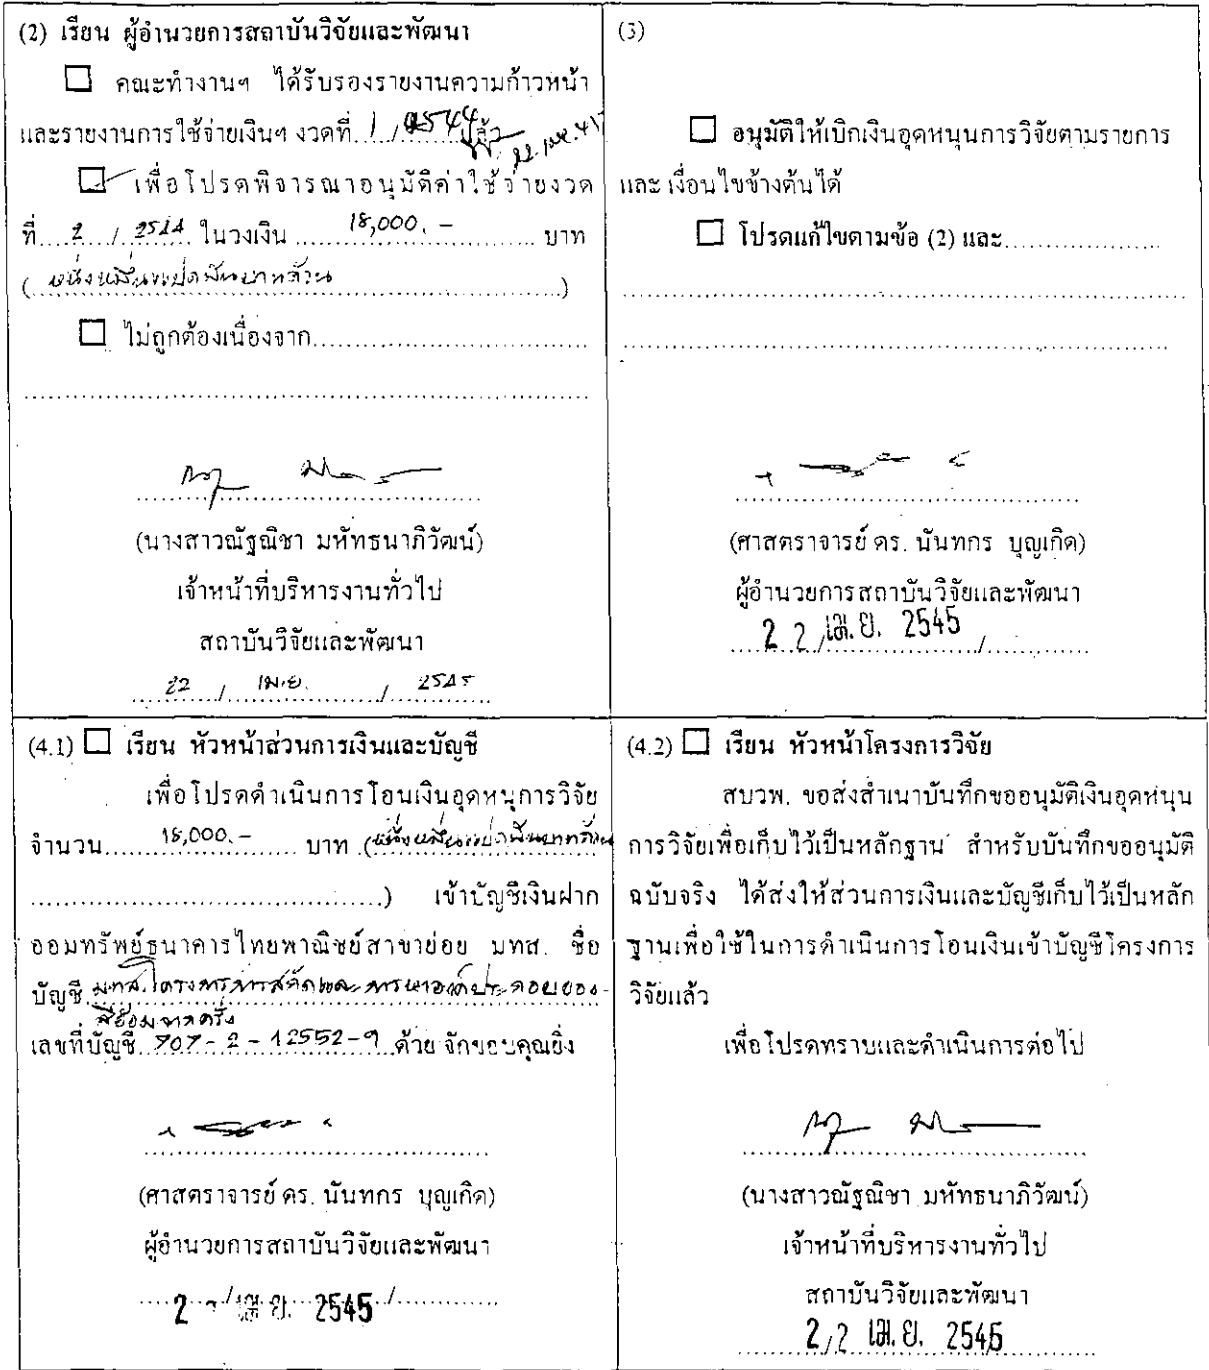 (2) เรียน ผู้อำนวยการสถาบันวิจัยและพัฒนา
คณะทำงานฯ ได้รับรองรายงานความก้าวหน้า
และรายงานการใช้จ่ายเงินฯ งวดที่ 1 / 2544 แล้ว
เพื่อโปรดพิจารณาอนุมัติค่าใช้จ่ายงวด
ที่ 2 / 2544 ในวงเงิน 18,000.- บาท
(หนึ่งหมื่นแปดพันบาทถ้วน)
ไม่ถูกต้องเนื่องจาก
(นางสาวณัฐณิชา มหัทธนาภิวัฒน์)
เจ้าหน้าที่บริหารงานทั่วไป
สถาบันวิจัยและพัฒนา
22 / เม.ย. / 2545
(3)
อนุมัติให้เบิกเงินอุดหนุนการวิจัยตามรายการ
และ เงื่อนไขข้างต้นได้
โปรดแก้ไขตามข้อ (2) และ
(ศาสตราจารย์ ดร. นันทกร บุญเกิด)
ผู้อำนวยการสถาบันวิจัยและพัฒนา
2 2 เม.ย. 2545
(4.1) เรียน หัวหน้าส่วนการเงินและบัญชี
เพื่อโปรดดำเนินการโอนเงินอุดหนุการวิจัย
จำนวน 18,000.- บาท (หนึ่งหมื่นแปดพันบาทถ้วน
) เข้าบัญชีเงินฝาก
ออมทรัพย์ธนาคารไทยพาณิชย์สาขาย่อย มทส. ชื่อ
บัญชี มทส.โครงการการสกัดและการหาองค์ประกอบของ
สีย้อมจากครั่ง
เลขที่บัญชี 707-2-12552-9 ด้วย จักขอบคุณยิ่ง
(ศาสตราจารย์ ดร. นันทกร บุญเกิด)
ผู้อำนวยการสถาบันวิจัยและพัฒนา
2 เม.ย. 2545
(4.2) เรียน หัวหน้าโครงการวิจัย
สบวพ. ขอส่งสำเนาบันทึกขออนุมัติเงินอุดหนุน
การวิจัยเพื่อเก็บไว้เป็นหลักฐาน สำหรับบันทึกขออนุมัติ
ฉบับจริง ได้ส่งให้ส่วนการเงินและบัญชีเก็บไว้เป็นหลัก
ฐานเพื่อใช้ในการดำเนินการโอนเงินเข้าบัญชีโครงการ
วิจัยแล้ว
เพื่อโปรดทราบและดำเนินการต่อไป
(นางสาวณัฐณิชา มหัทธนาภิวัฒน์)
เจ้าหน้าที่บริหารงานทั่วไป
สถาบันวิจัยและพัฒนา
2 2 เม.ย. 2545